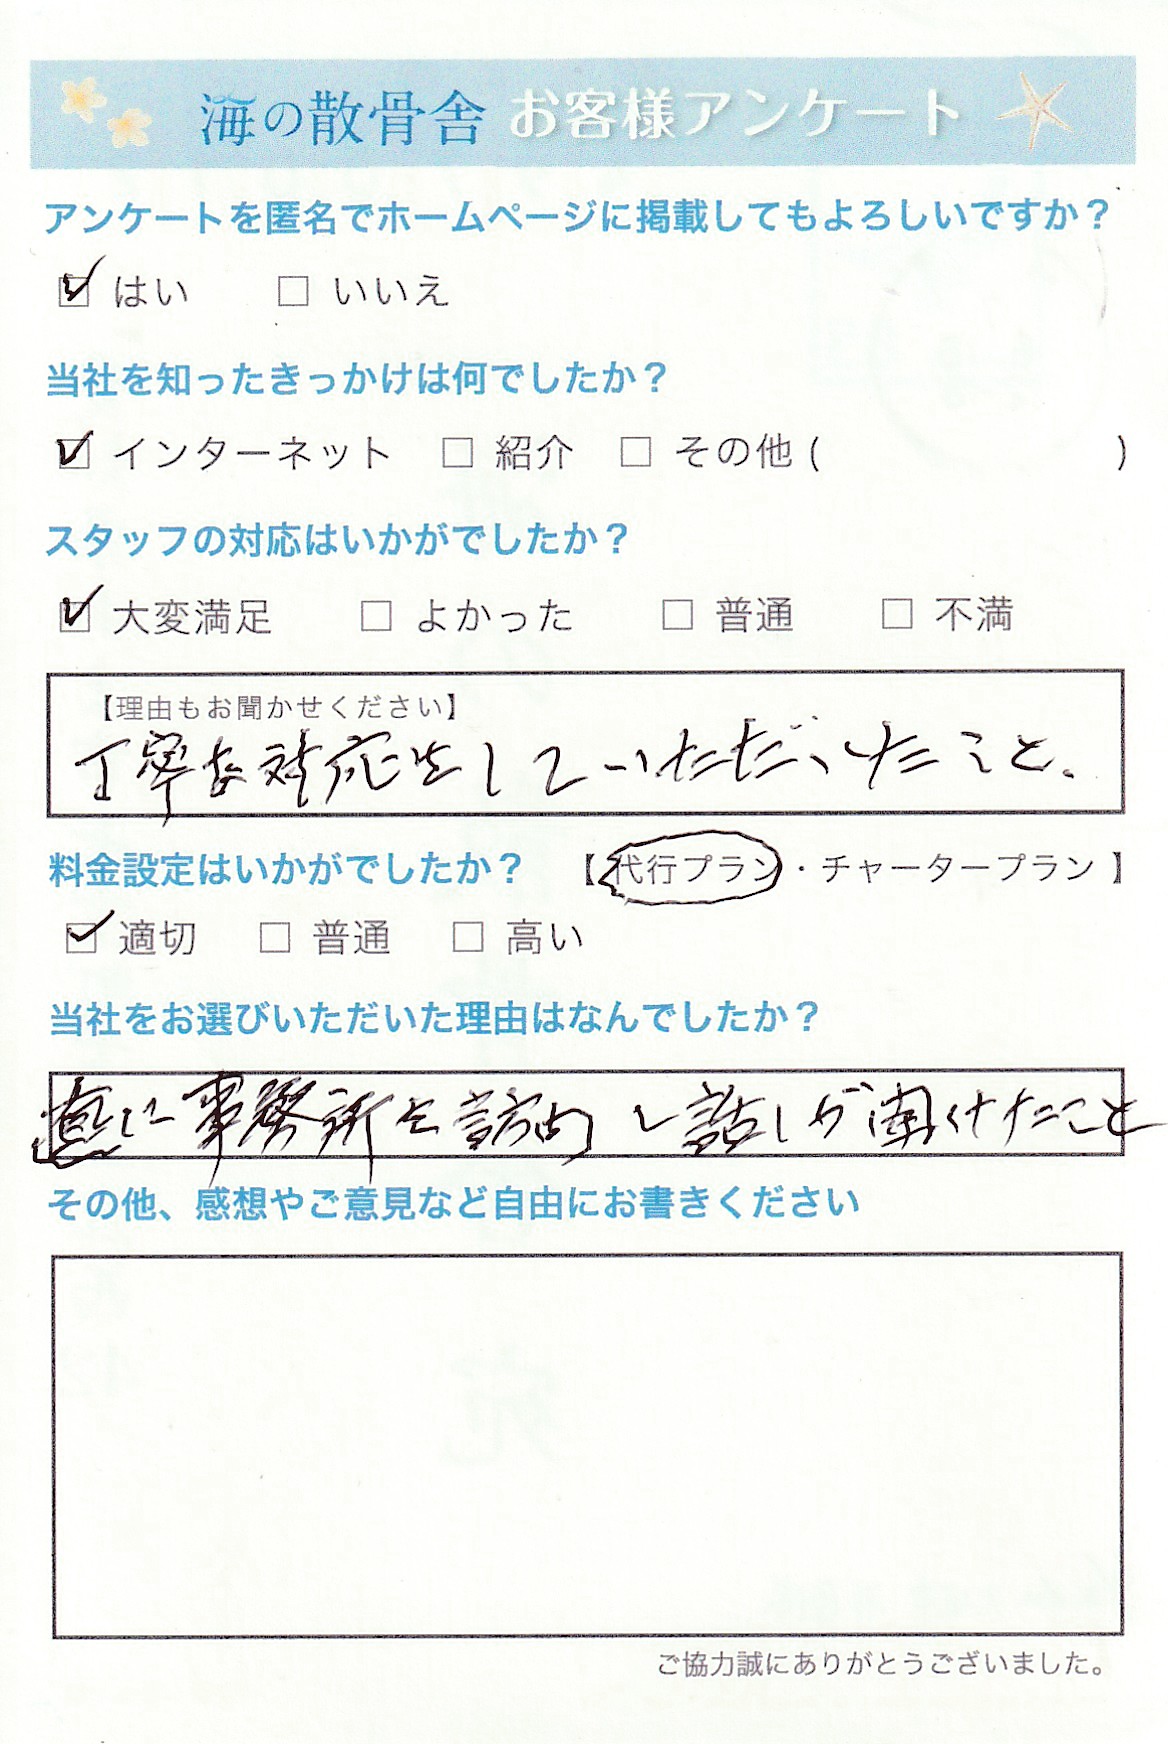 海の散骨舎 お客様アンケート
アンケートを匿名でホームページに掲載してもよろしいですか？
☑ はい □ いいえ
当社を知ったきっかけは何でしたか？
☑ インターネット □ 紹介 □ その他 ( )
スタッフの対応はいかがでしたか？
☑ 大変満足 □ よかった □ 普通 □ 不満
【理由もお聞かせください】
丁寧な対応をしていただいたこと。
料金設定はいかがでしたか？ 【 代行プラン・チャータープラン 】
☑ 適切 □ 普通 □ 高い
当社をお選びいただいた理由はなんでしたか？
直に事務所を訪問し話しが聞けたこと
その他、感想やご意見など自由にお書きください
ご協力誠にありがとうございました。